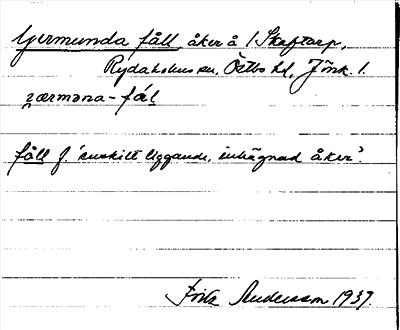 Germunda fåll, åker å 1 Skaftarp,
Rydaholms sn, Östbo hd, Jönk. l.
ɟærməna-fál
fåll f. 'enskilt liggande, inhägnad åker'.
Fritz Andersson 1937.